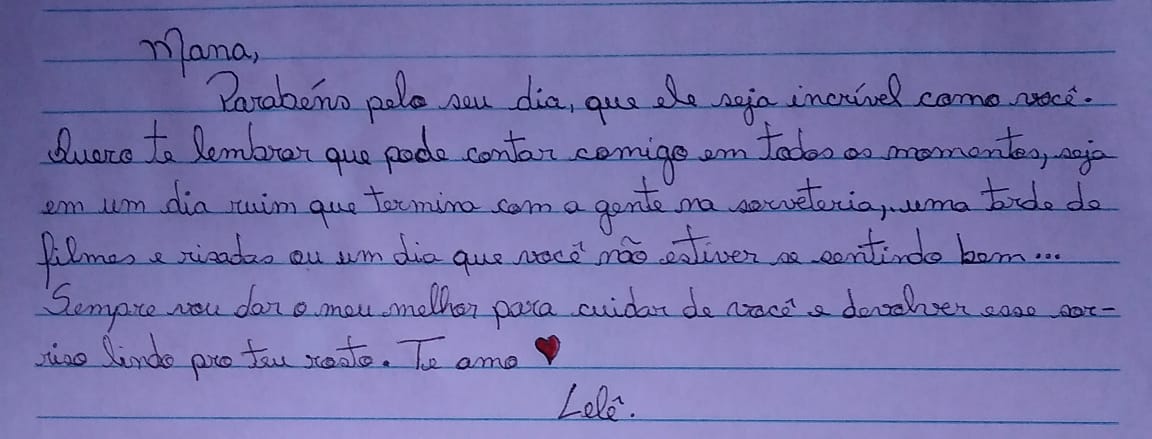 Mana,
Parabéns pelo seu dia, que ele seja incrível como você.
Quero te lembrar que pode contar comigo em todos os momentos, seja
em um dia ruim que termina com a gente na sorveteria, uma tarde de
filmes e risadas ou um dia que você não estiver se sentindo bem...
Sempre vou dar o meu melhor para cuidar de você e devolver esse sor-
riso lindo pro teu rosto. Te amo ♥
Lelê.